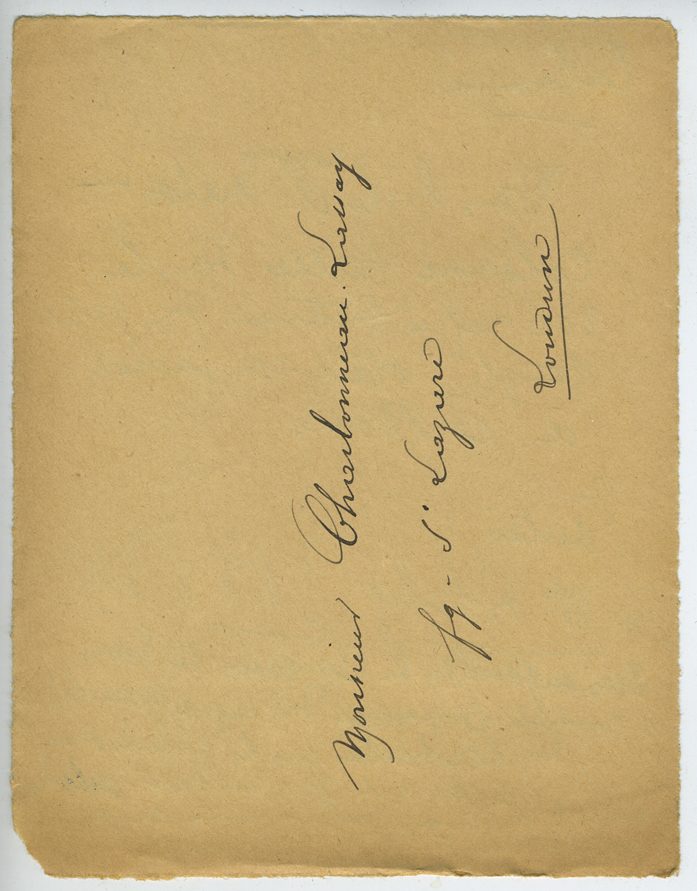 Monsieur Charbonneau-Lassay
fg - St Lazare
Loudun